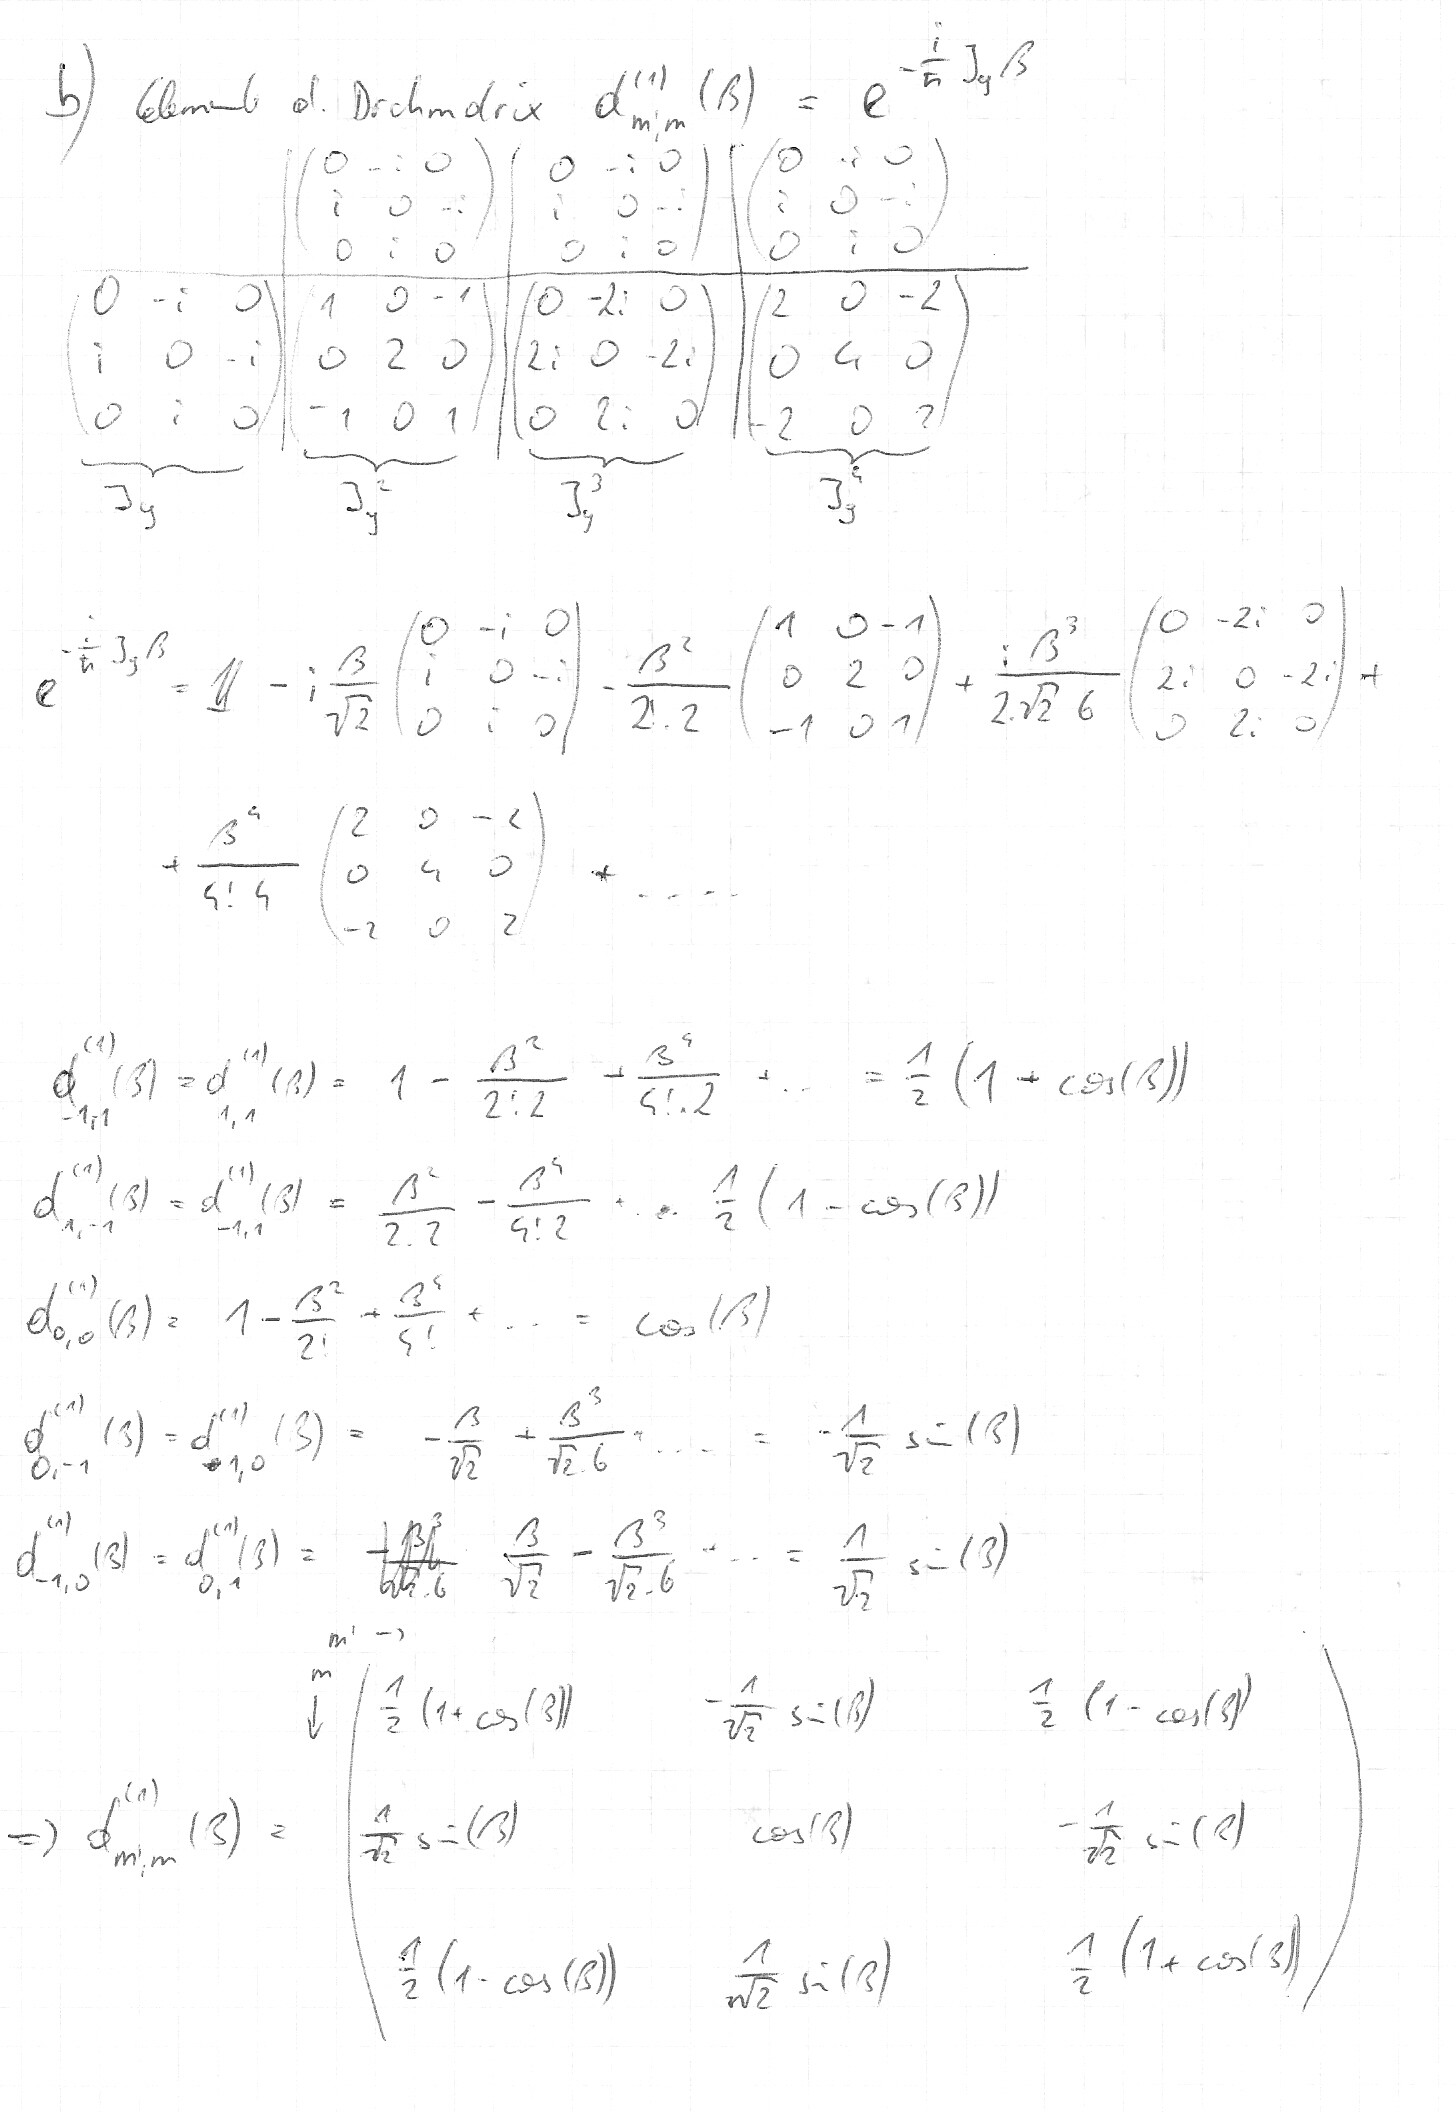 b) Element d. Drehmatrix d^{(1)}_{m',m}(β) = e^{-\frac{i}{ħ} J_y β}
\begin{pmatrix} 0 & -i & 0 \\ i & 0 & -i \\ 0 & i & 0 \end{pmatrix} | \begin{pmatrix} 0 & -i & 0 \\ i & 0 & -i \\ 0 & i & 0 \end{pmatrix} | \begin{pmatrix} 0 & -i & 0 \\ i & 0 & -i \\ 0 & i & 0 \end{pmatrix}
\begin{pmatrix} 0 & -i & 0 \\ i & 0 & -i \\ 0 & i & 0 \end{pmatrix} | \begin{pmatrix} 1 & 0 & -1 \\ 0 & 2 & 0 \\ -1 & 0 & 1 \end{pmatrix} | \begin{pmatrix} 0 & -2i & 0 \\ 2i & 0 & -2i \\ 0 & 2i & 0 \end{pmatrix} | \begin{pmatrix} 2 & 0 & -2 \\ 0 & 4 & 0 \\ -2 & 0 & 2 \end{pmatrix}
J_y J_y^2 J_y^3 J_y^4
e^{-\frac{i}{ħ} J_y β} = 𝟙 - i \frac{β}{\sqrt{2}} \begin{pmatrix} 0 & -i & 0 \\ i & 0 & -i \\ 0 & i & 0 \end{pmatrix} - \frac{β^2}{2! \cdot 2} \begin{pmatrix} 1 & 0 & -1 \\ 0 & 2 & 0 \\ -1 & 0 & 1 \end{pmatrix} + \frac{i β^3}{2 \cdot \sqrt{2} \; 6} \begin{pmatrix} 0 & -2i & 0 \\ 2i & 0 & -2i \\ 0 & 2i & 0 \end{pmatrix} +
+ \frac{β^4}{4! \; 4} \begin{pmatrix} 2 & 0 & -2 \\ 0 & 4 & 0 \\ -2 & 0 & 2 \end{pmatrix} + .....
d^{(1)}_{-1,1}(β) = d^{(1)}_{1,1}(β) = 1 - \frac{β^2}{2! \cdot 2} + \frac{β^4}{4! \cdot 2} + ... = \frac{1}{2} (1 + cos(β))
d^{(1)}_{1,-1}(β) = d^{(1)}_{-1,1}(β) = \frac{β^2}{2 \cdot 2} - \frac{β^4}{4! \cdot 2} + ... \frac{1}{2} (1 - cos(β))
d^{(1)}_{0,0}(β) = 1 - \frac{β^2}{2!} + \frac{β^4}{4!} + ... = cos(β)
d^{(1)}_{0,-1}(β) = d^{(1)}_{1,0}(β) = -\frac{β}{\sqrt{2}} + \frac{β^3}{\sqrt{2} \cdot 6} + .... = -\frac{1}{\sqrt{2}} sin(β)
d^{(1)}_{-1,0}(β) = d^{(1)}_{0,1}(β) = \frac{β}{\sqrt{2}} - \frac{β^3}{\sqrt{2} \cdot 6} + ... = \frac{1}{\sqrt{2}} sin(β)
m' →
m ↓
⇒ d^{(1)}_{m',m}(β) = \begin{pmatrix} \frac{1}{2}(1+cos(β)) & -\frac{1}{\sqrt{2}} sin(β) & \frac{1}{2}(1-cos(β)) \\ \frac{1}{\sqrt{2}} sin(β) & cos(β) & -\frac{1}{\sqrt{2}} sin(β) \\ \frac{1}{2}(1-cos(β)) & \frac{1}{\sqrt{2}} sin(β) & \frac{1}{2}(1+cos(β)) \end{pmatrix}